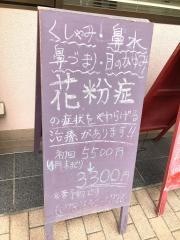 くしゃみ・鼻水
鼻づまり・目のかゆみ!
花粉症
の症状をやわらげる
治療があります!!
初回 5500円
3300円